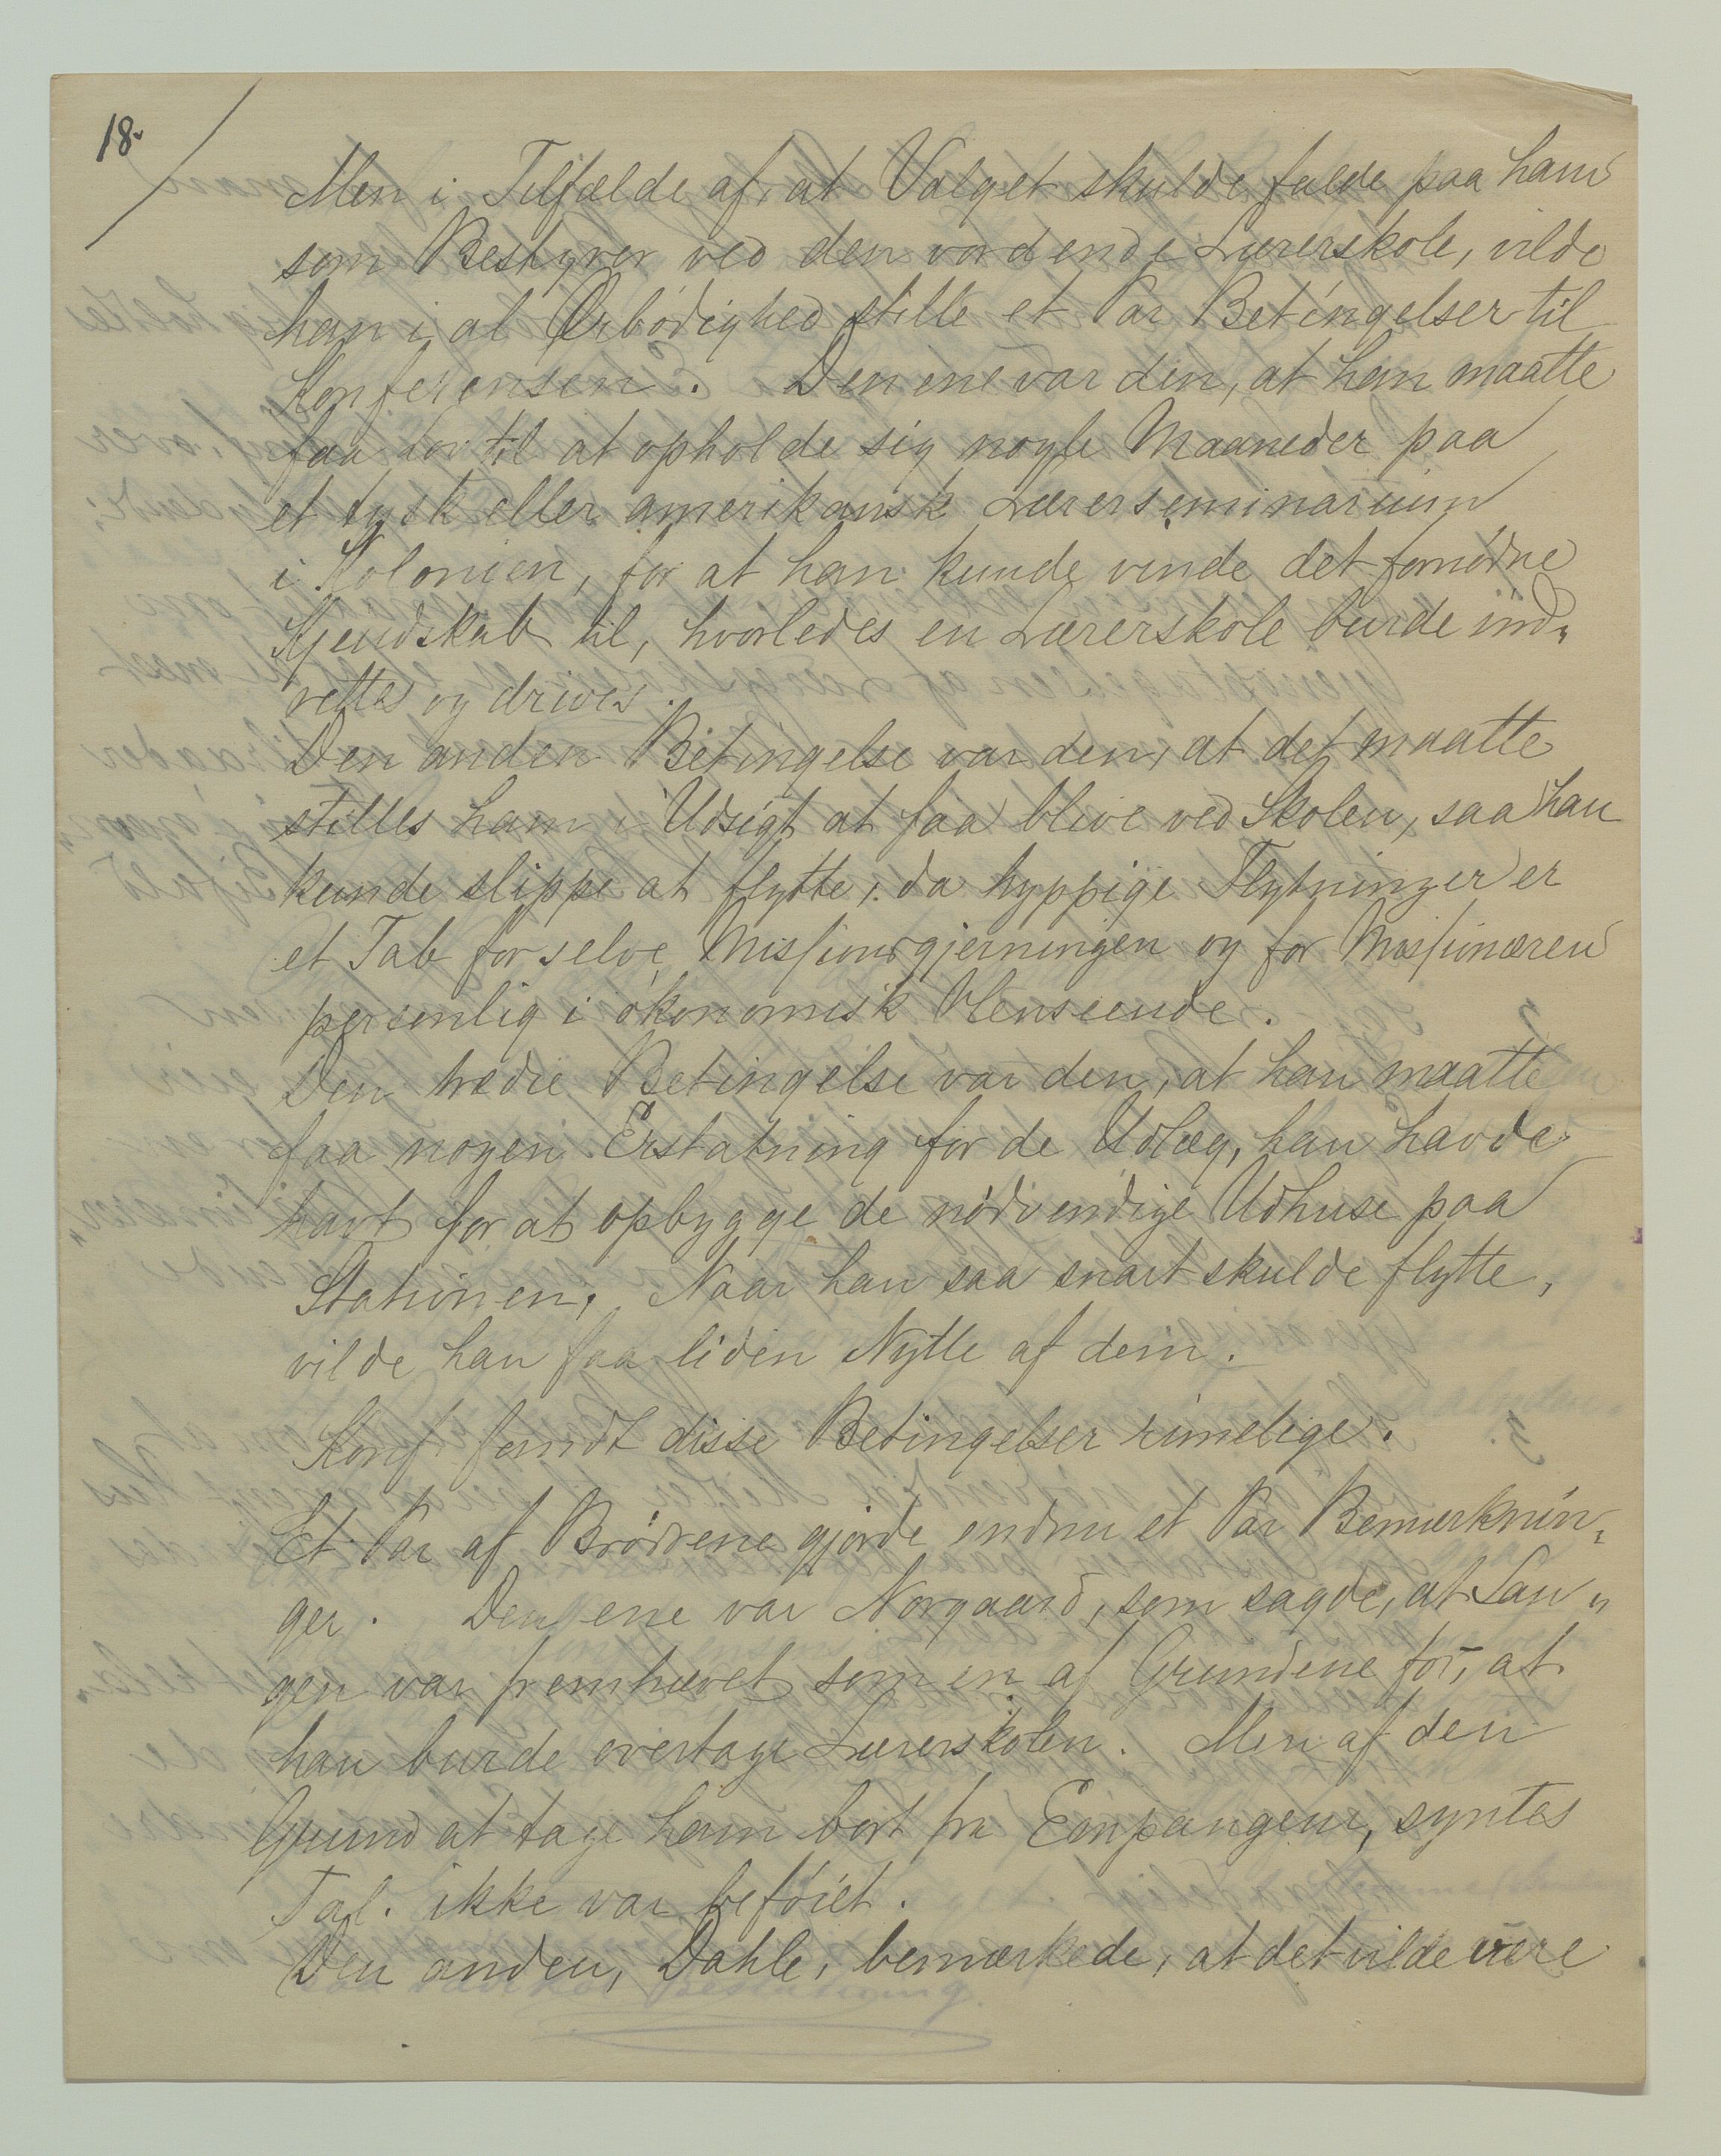 18.
Men i Tilfælde af, at Valget skulde falde paa ham
som Bestyrer ved den vordende Lærerskole, vilde
han i al Ærbødighed stille et Par Betingelser til
Konferensen. Den ene var den, at han maatte
faa Lov til at opholde sig nogle Maaneder paa
et tysk eller amerikansk Lærerseminarium
i Kolonien, for at han kunde vinde det fornødne
Kjendskab til, hvorledes en Lærerskole burde ind„
rettes og drives.
Den anden Betingelse var den, at det maatte
stilles ham i Udsigt at faa blive ved Skolen, saa han
kunde slippe at flytte, da hyppige Flytninger er
et Tab for selve Missionsgjerningen og for Missionæren
personlig i økonomisk Henseende.
Den tredie Betingelse var den, at han maatte
faa nogen Erstatning for de Udlæg, han havde
havt for at opbygge de nødvendige Udhuse paa
Stationen. Naar han saa snart skulde flytte,
vilde han faa liden Nytte af dem.
Konf. fandt disse Betingelser rimelige.
Et Par af Brødrene gjorde endnu et Par Bemærknin„
ger. Den ene var Norgaard, som sagde, at San„
gen var fremhævet som en af Grundene for, at
han burde overtage Lærerskolen. Men af den
Grund at tage ham bort fra Eonpangeni, syntes
Tal. ikke var beføiet.
Den anden, Dahle, bemærkede, at det vilde være